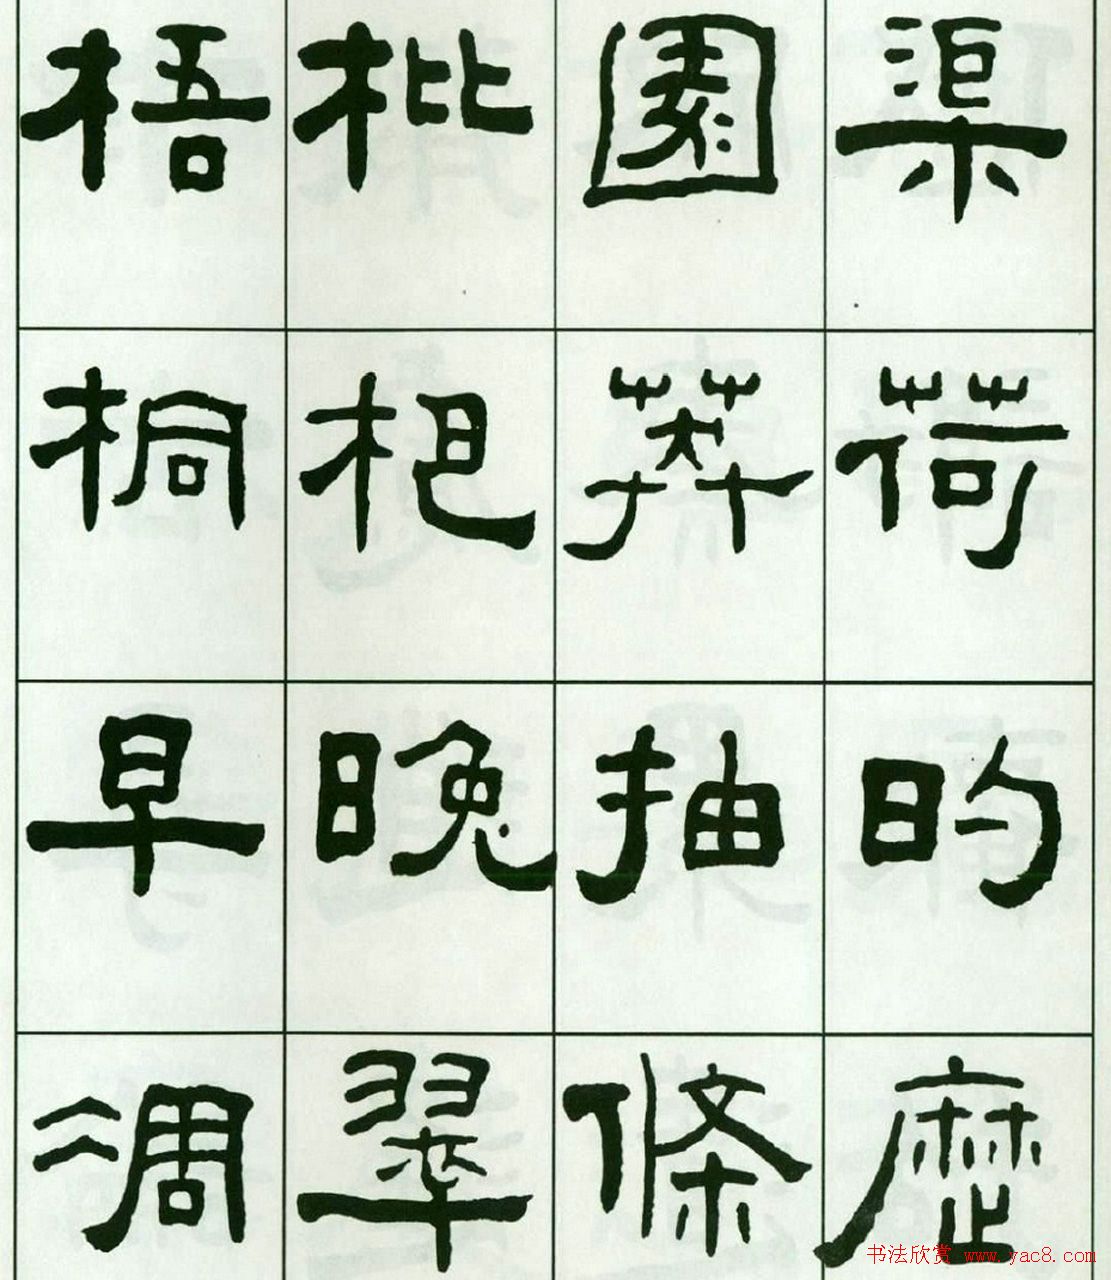 渠荷的歷
園莽抽條
枇杷晚翠
梧桐早凋
书法欣赏 www.yac8.com